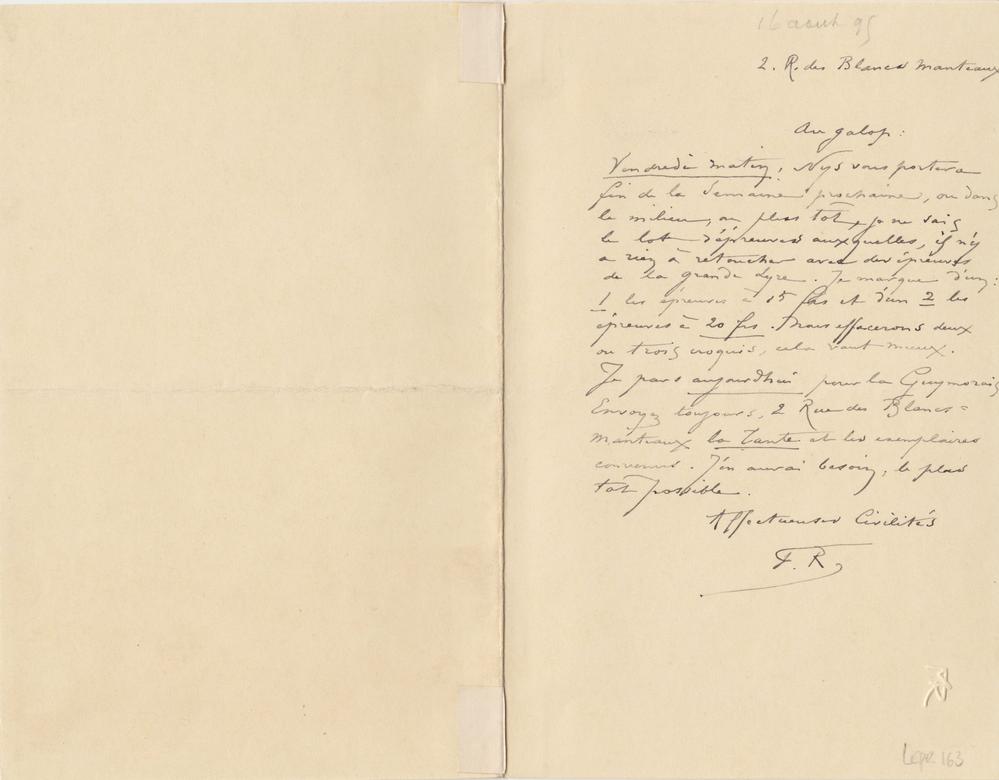 16 aout 95
2. R. des Blancs Manteaux
Au galop :
Vendredi matin, Nys vous portera
fin de la Semaine prochaine, ou dans
le milieu, ou plus tôt, je ne sais
le lot d'épreuves auxquelles, il n'y
a rien à retoucher avec des épreuves
de la grande Lyre. Je marque d'un :
1 les épreuves à 15 frs et d'un 2 les
épreuves à 20 frs. Nous effacerons deux
ou trois croquis, cela vaut mieux.
Je pars aujourdhui pour la Guymorais
Envoyez toujours, 2 Rue des Blancs =
Manteaux la Tante et les exemplaires
convenus. J'en aurai besoin, le plus
tot possible.
Affectueuses Civilités
F. R.
Lepr 163